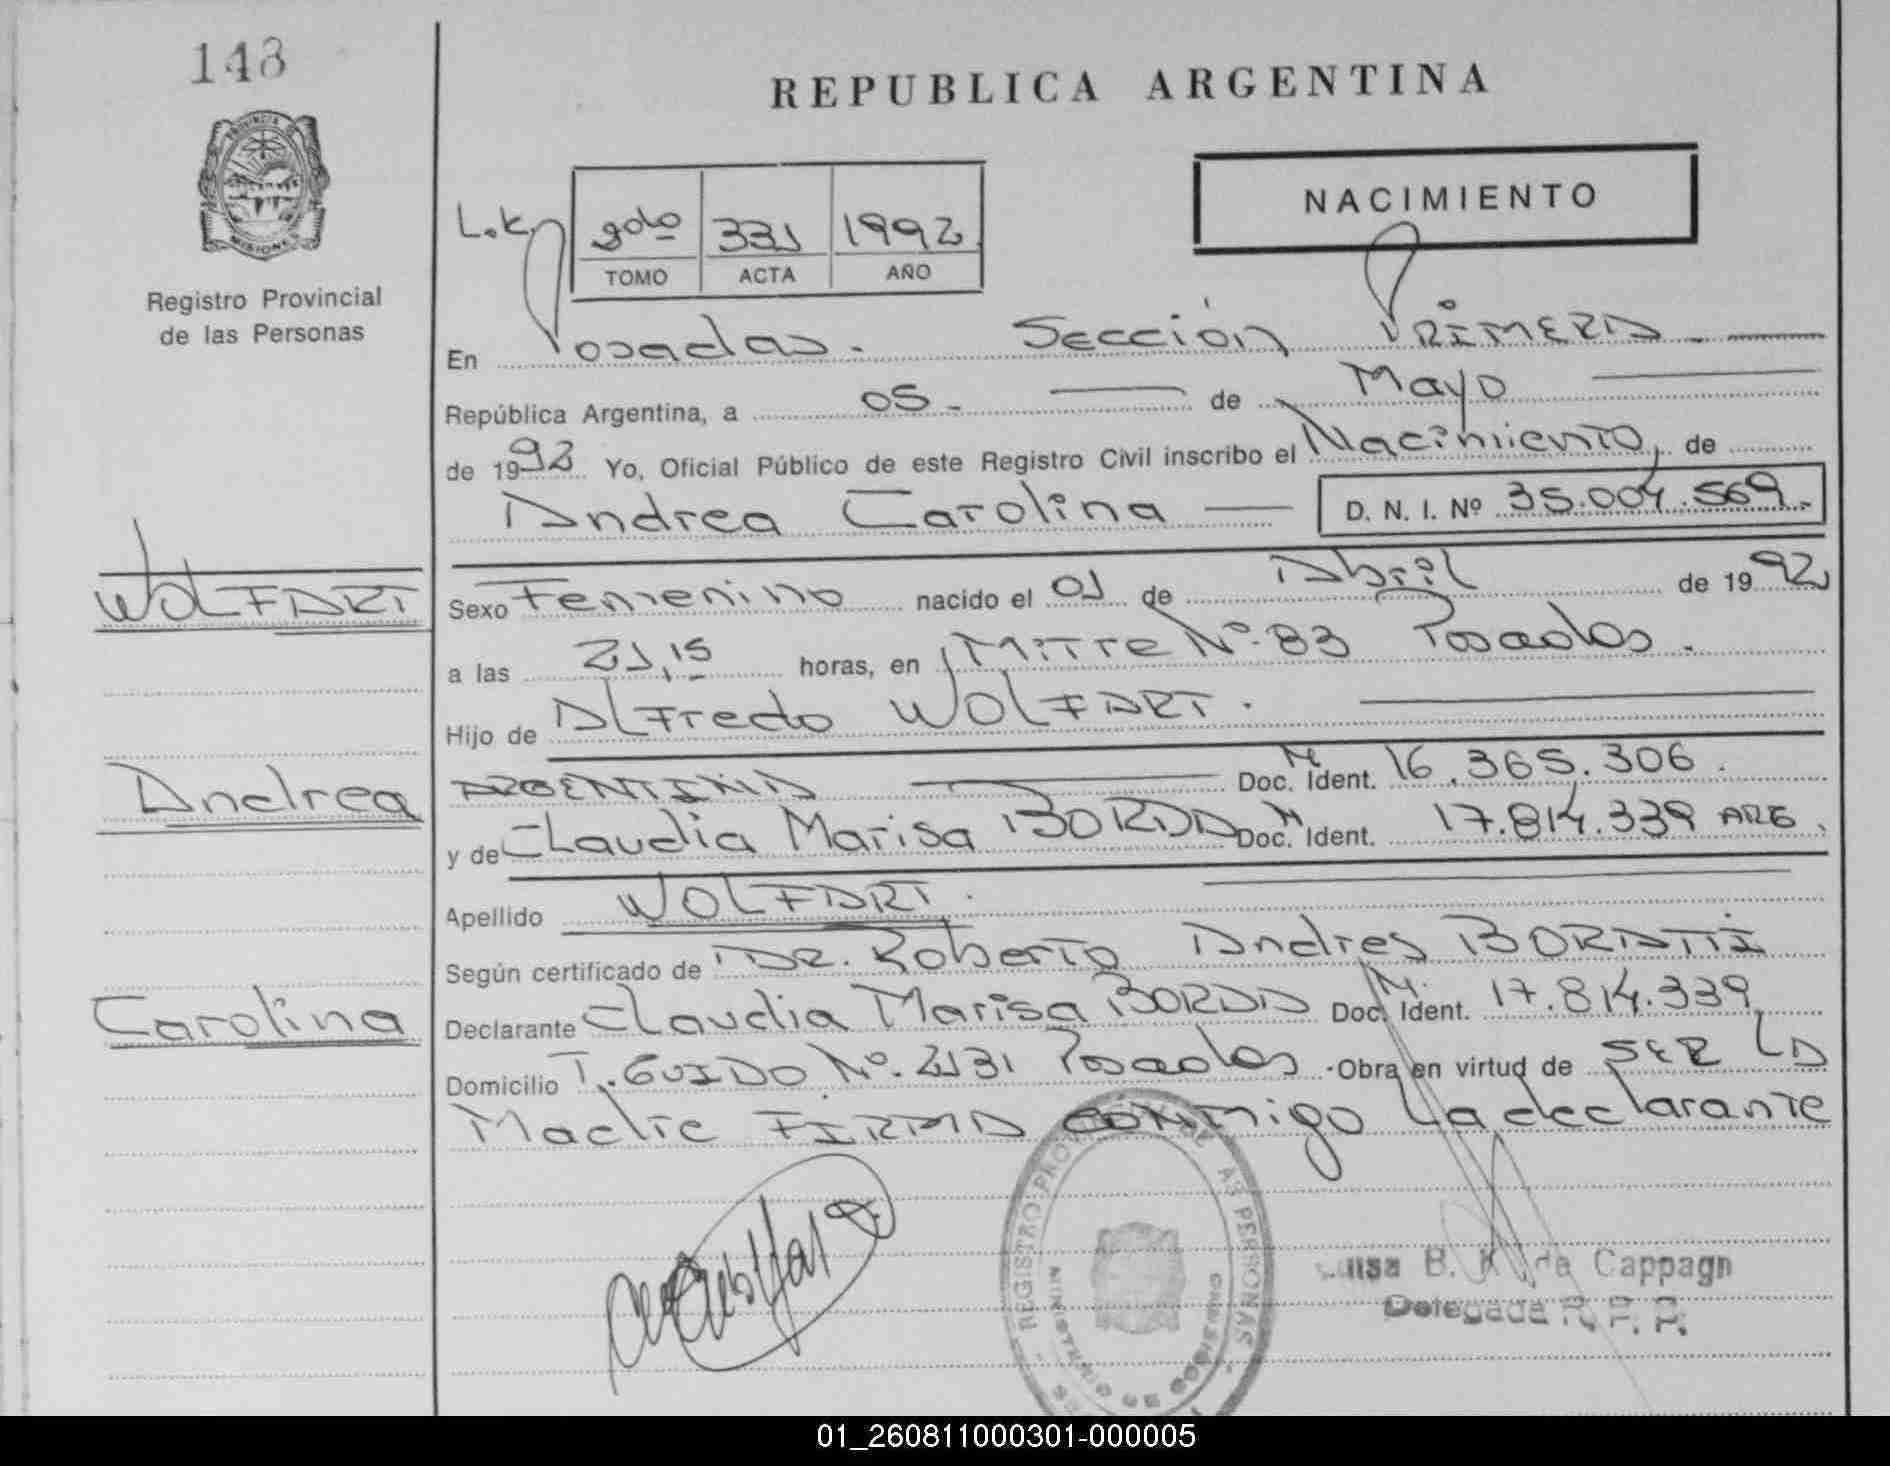 148
REPUBLICA ARGENTINA
PROVINCIA DE MISIONES
Registro Provincial
de las Personas
NACIMIENTO
L.K. 2do 331 1992
TOMO ACTA AÑO
En Posadas. Sección PRIMERA
República Argentina, a 05 de Mayo
de 1992 Yo, Oficial Público de este Registro Civil inscribo el Nacimiento, de
Andrea Carolina D. N. I. Nº 35.004.569.
WOLFART
Sexo Femenino nacido el 01 de Abril de 1992
a las 21,15 horas, en MiTTre Nº. 83 Posadas.
Hijo de ALFredo WOLFART.
Andrea
ARGENTINA Doc. M Ident. 16.365.306.
y de CLaudia Marisa BORDA Doc. M Ident. 17.814.339 ARG.
Apellido WOLFART.
Según certificado de DR. Roberto Andres
Carolina
Declarante CLaudia Marisa BORDA Doc. M. Ident. 17.814.339
Domicilio T. GUIDO Nº. 2131 Posadas - Obra en virtud de SER LA
Madre FIRMA conmigo La declarante
REGISTRO PROVINCIAL DE LAS PERSONAS
MINISTERIO DE GOBIERNO
B. K. de Cappagn
Delegada R. P. P.
01_260811000301-000005